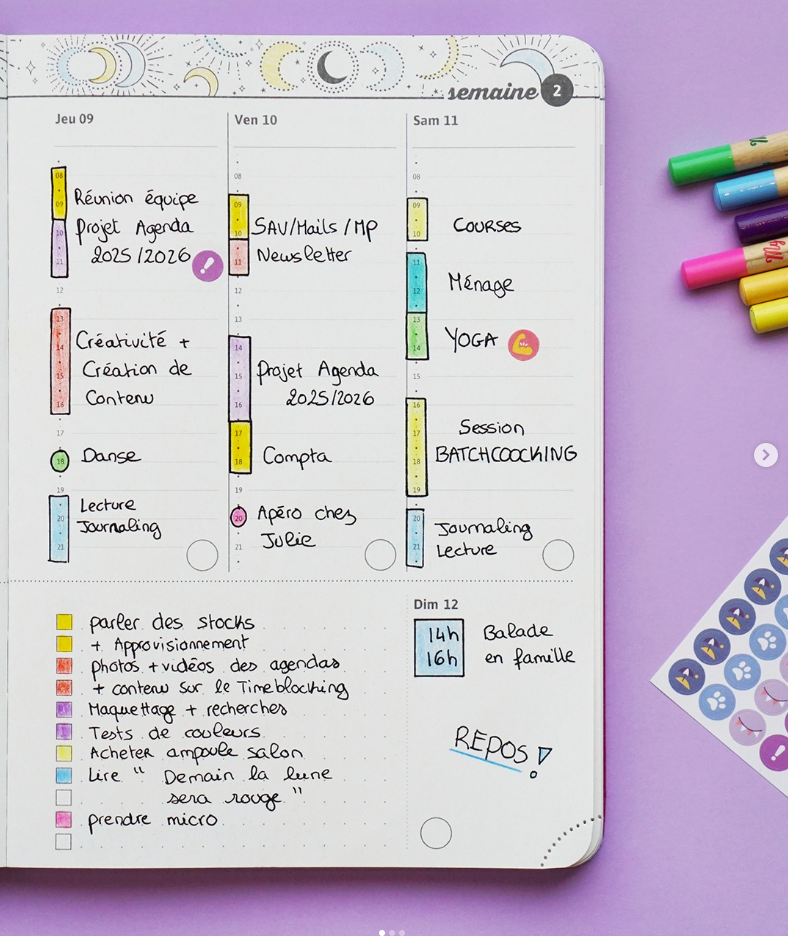 semaine 2
Jeu 09
08
09
10
11
12
13
14
15
16
17
18
19
20
21
Réunion équipe
projet Agenda
2025/2026
!
Créativité +
Création de
Contenu
Danse
Lecture
Journaling
Ven 10
08
09
10
11
12
13
14
15
16
17
18
19
20
21
SAV/Mails/MP
Newsletter
projet Agenda
2025/2026
Compta
Apéro chez
Julie
Sam 11
08
09
10
11
12
13
14
15
16
17
18
19
20
21
COURSES
Ménage
YOGA
Session
BATCHCOOCKING
Journaling
Lecture
parler des stocks
+ Approvisionnement
photos + vidéos des agendas
+ contenu sur le Timeblocking
Maquettage + recherches
Tests de couleurs
Acheter ampoule salon
Lire " Demain la lune
sera rouge "
prendre micro
Dim 12
14h
16h
Balade
en famille
REPOS!
!